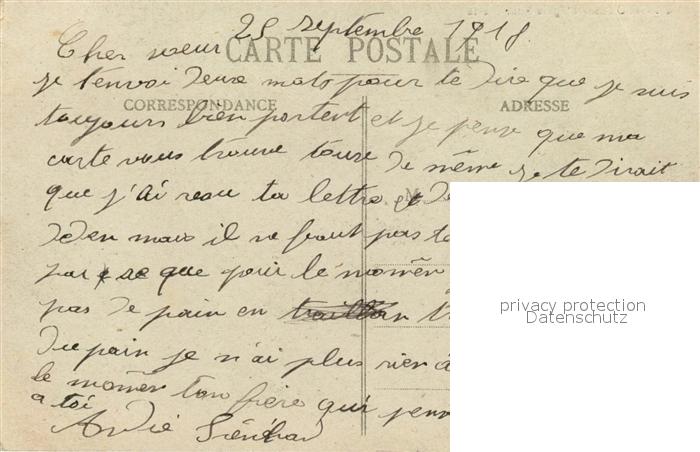 25 septembre 1918
Cher sœur
CARTE POSTALE
je t'envoi deux mots pour te dire que je suis
CORRESPONDANCE
ADRESSE
toujours bien portent et je pense que ma
carte vous trouve tous de même je te dirait
que j'ai resu ta lettre et de
deden mais il ne faut pas
par se que pour le momen
pas de pain en
du pain je n'ai plus rien a
le momen ton frère qui pens
a toi
André
privacy protection
Datenschutz